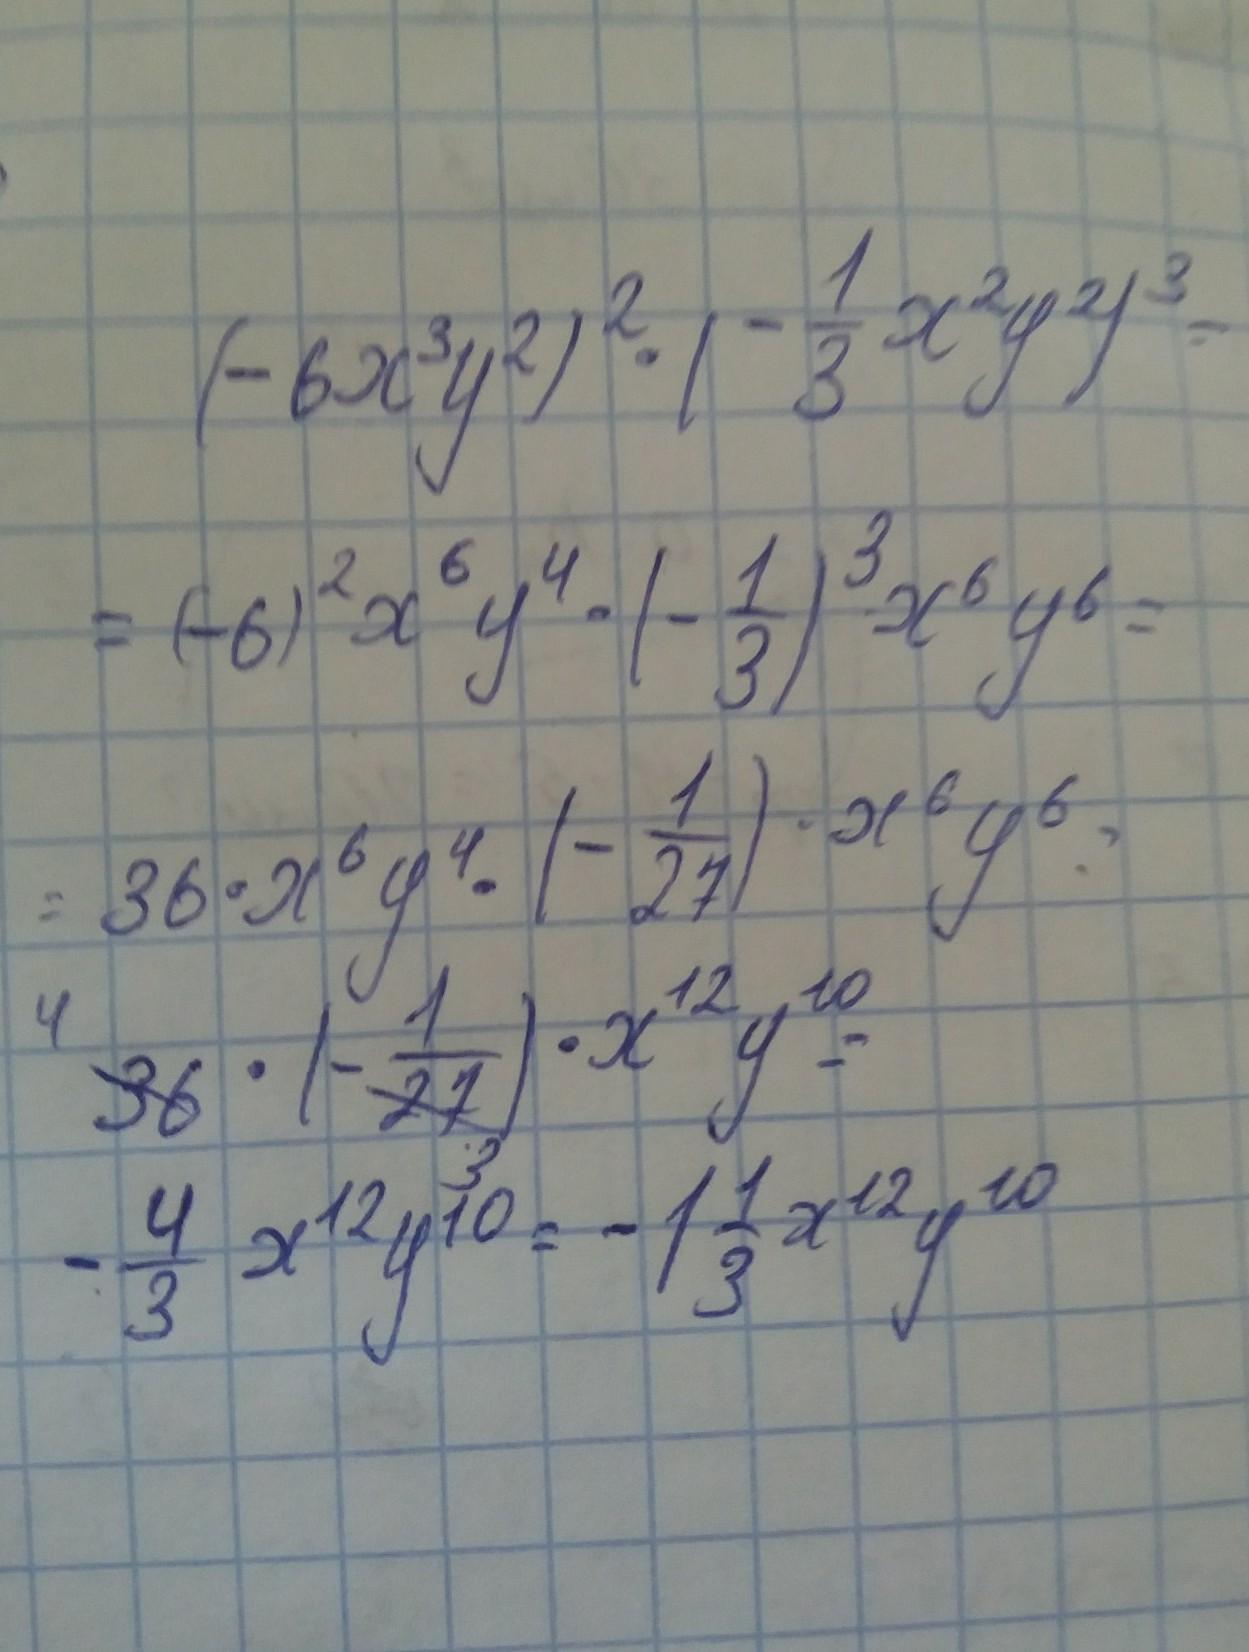 (-6x³y²)²·(-1/3 x²y²)³=
=(-6)²x⁶y⁴·(-1/3)³x⁶y⁶=
=36·x⁶y⁴·(-1/27)·x⁶y⁶=
4
36·(-1/27)·x¹²y¹⁰=
3
-4/3 x¹²y¹⁰=-1 1/3 x¹²y¹⁰